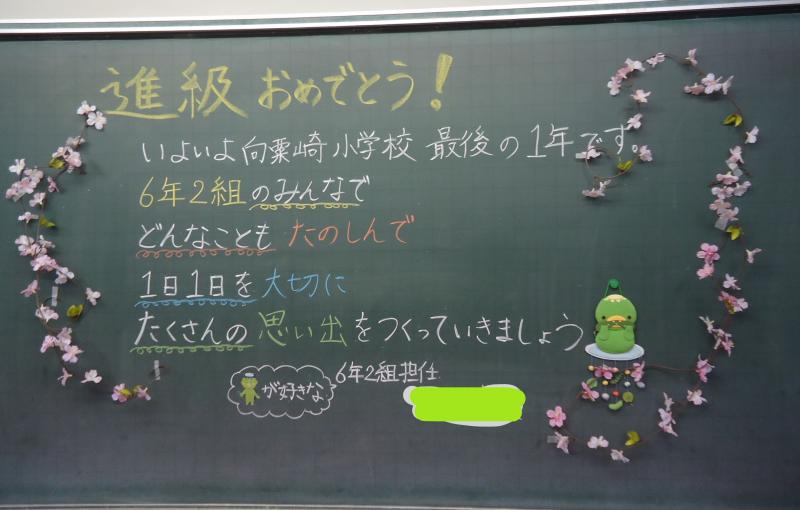 進級おめでとう!
いよいよ向粟崎小学校 最後の1年です。
6年2組のみんなで
どんなことも たのしんで
1日1日を大切に
たくさんの思い出をつくっていきましょう
が好きな 6年2組担任